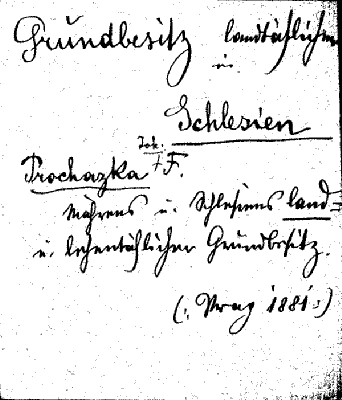 Grundbesitz landtäflicher
in
Schlesien
Prochazka Joh. F.
Mährens u. Schlesiens land=
u. lehentäflicher Grundbesitz.
(: Prag 1881 :)